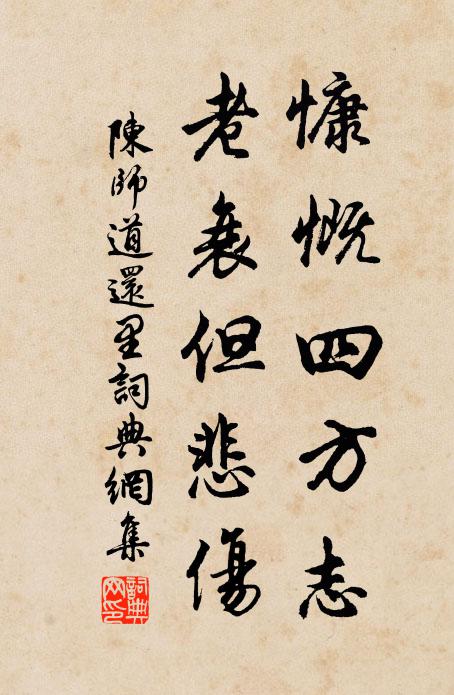 慷慨四方志
老衰但悲傷
陳師道還里詞典網集
詞典網印